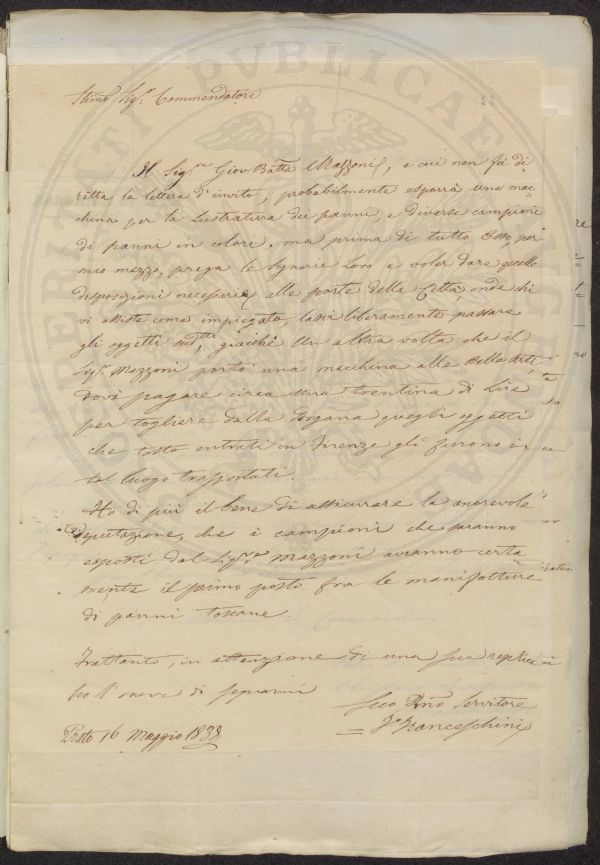 Illmo Sigr. Commendatore
Il Sigre. Giov. Batta Mazzoni, a cui non fù di-
retta la lettera d'invito, probabilmente esporrà una mac-
china per la Lustratura dei panni, e diversi campioni
di panni in colori, ma prima di tutto Esso, per
mio mezzo, prega le Signorie Loro a voler dare quelle
disposizioni necessarie alle porte della Città, onde chi
vi assiste come impiegato, lasci liberamente passare
gli oggetti sudtti, giacchè un altra volta che il
Sigr. Mazzoni portò una macchina alle Belle Arti,
dovè pagare circa una trentina di Lire
per togliere dalla Dogana quegli oggetti
che tosto entrati in Firenze gli furono in
tal luogo trasportati.
Ho di più il bene di assicurare la onorevole
Deputazione, che i campioni che saranno
esposti dal Sigre. Mazzoni avranno certa
mente il primo posto fra le manifatture
di panni toscane.
Frattanto, in attenzione di una sua replica
ho l'onore di segnarmi
Suo Dmo Servitore
Franceschini
Prato 16 Maggio 1838